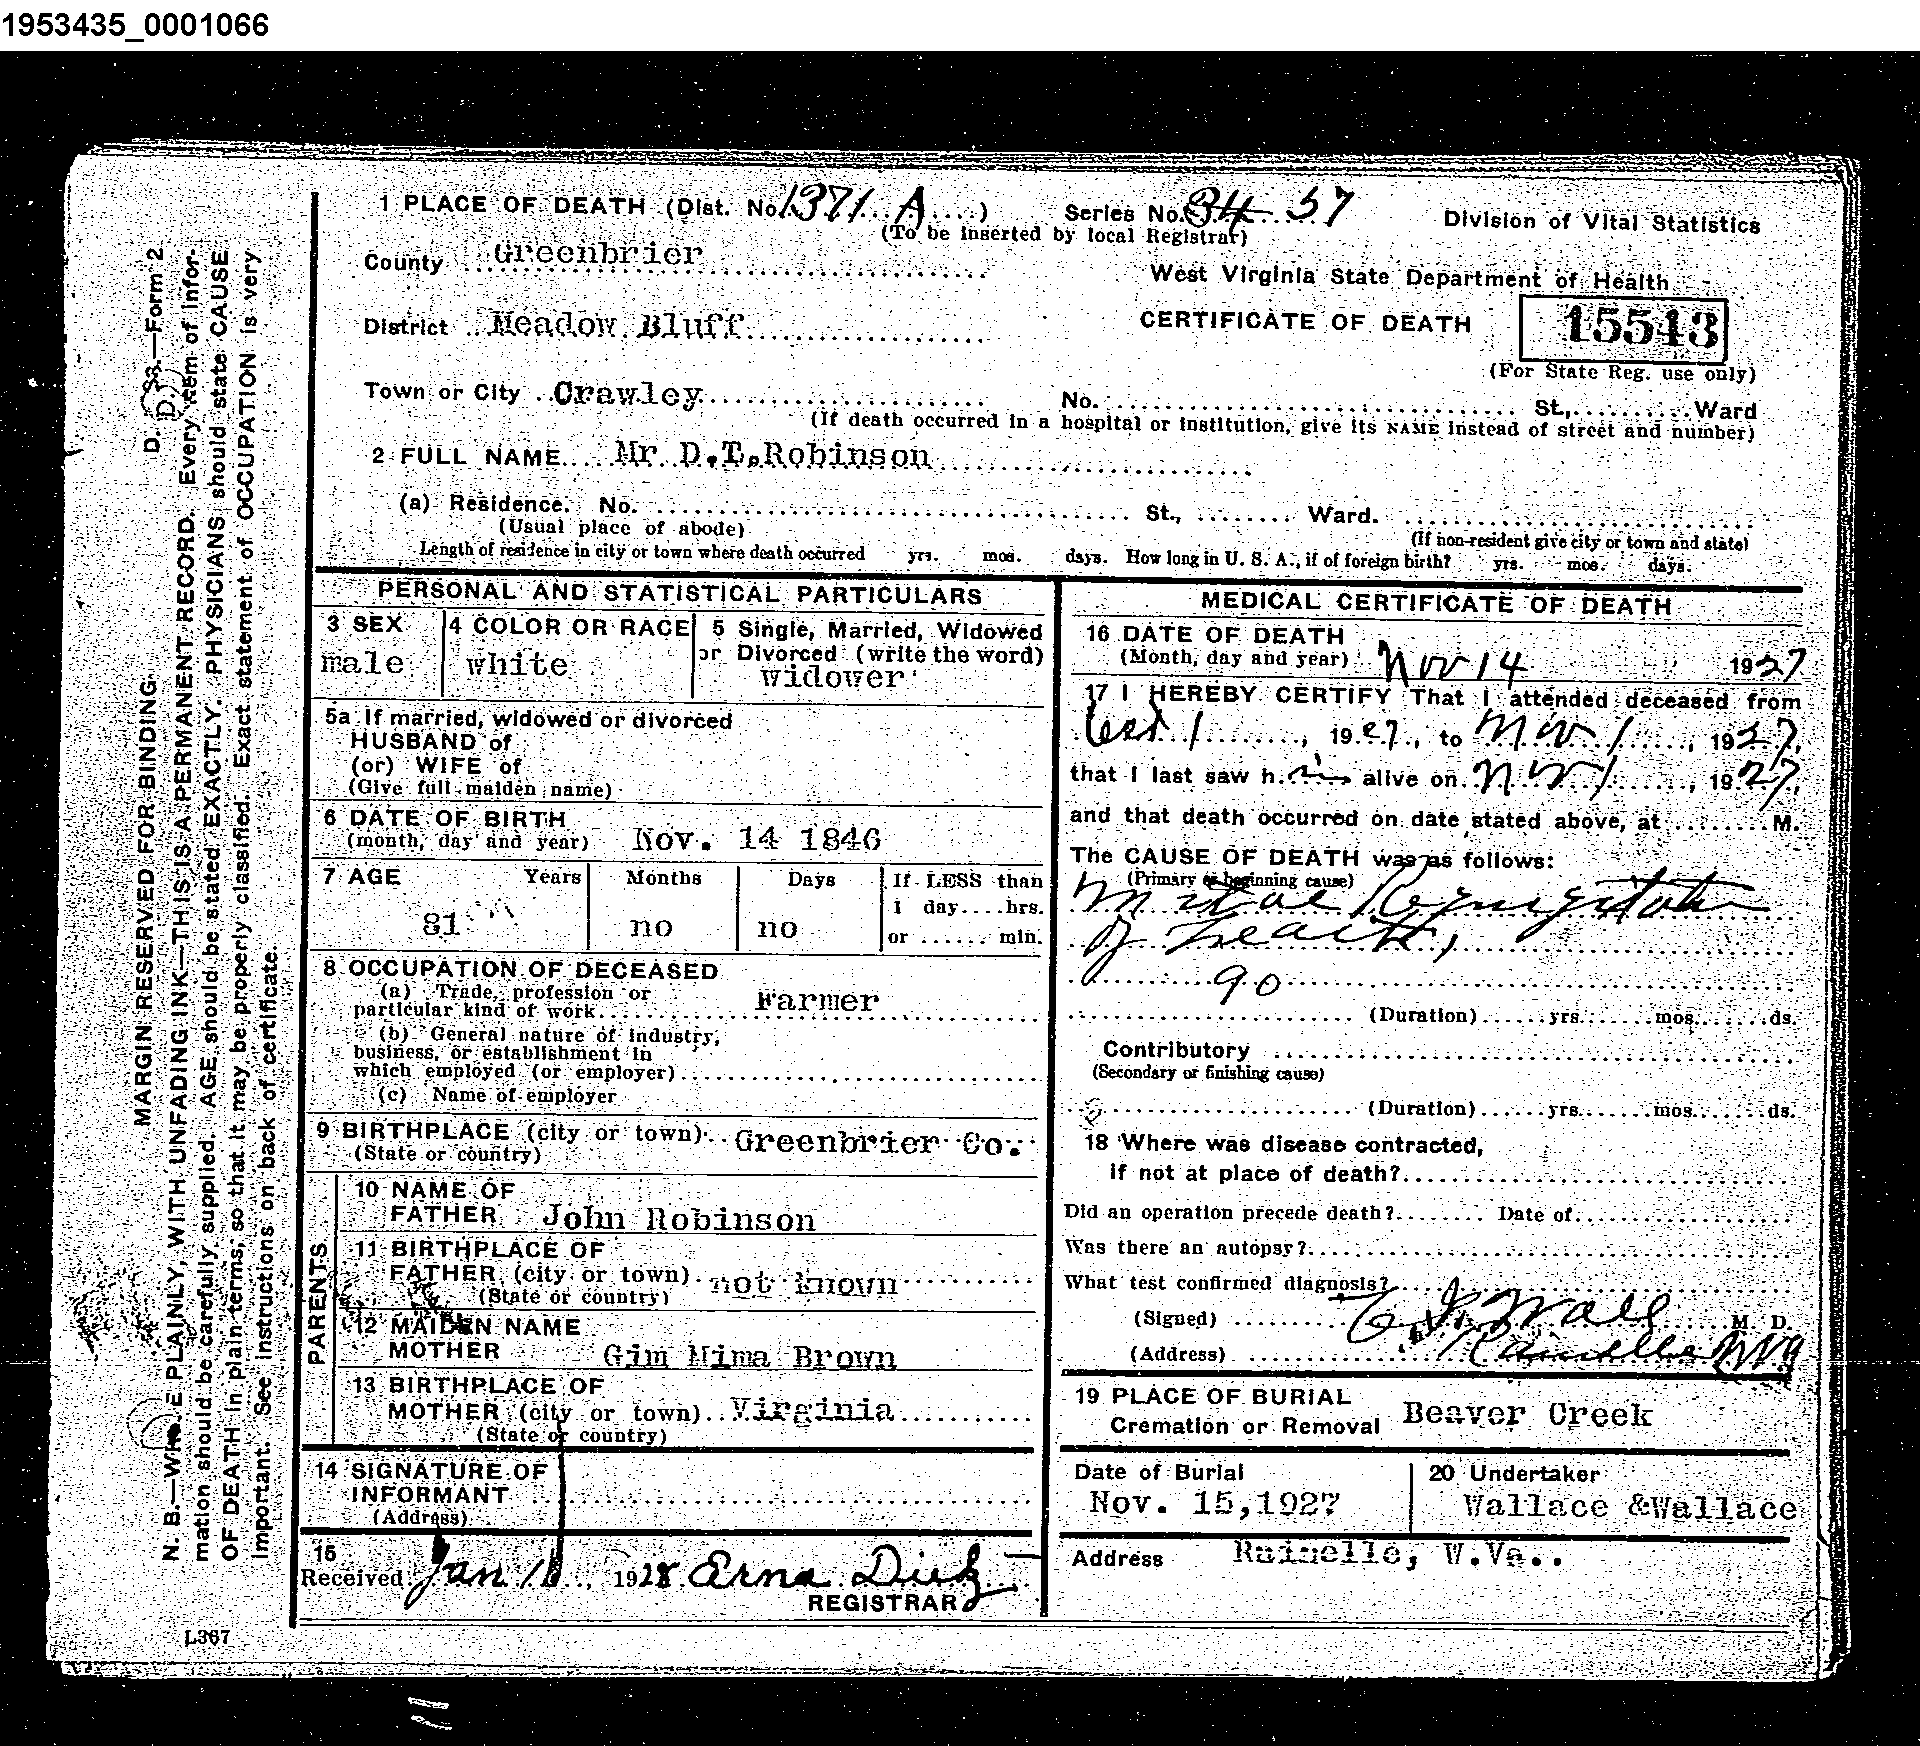 1953435_0001066
1 PLACE OF DEATH (Dist. No. 1371 A ) Series No. 34 57 Division of Vital Statistics
(To be inserted by local Registrar)
County Greenbrier
West Virginia State Department of Health
District Meadow Bluff CERTIFICATE OF DEATH 15543
(For State Reg. use only)
Town or City Crawley No. St., Ward
(If death occurred in a hospital or institution, give its NAME instead of street and number)
2 FULL NAME Mr D.T. Robinson
(a) Residence. No. St., Ward.
(Usual place of abode) (If non-resident give city or town and state)
Length of residence in city or town where death occurred yrs. mos. days. How long in U. S. A., if of foreign birth? yrs. mos. days.
PERSONAL AND STATISTICAL PARTICULARS
3 SEX 4 COLOR OR RACE 5 Single, Married, Widowed
or Divorced (write the word)
male white widower
5a If married, widowed or divorced
HUSBAND of
(or) WIFE of
(Give full maiden name)
6 DATE OF BIRTH
(month, day and year) Nov. 14 1846
7 AGE Years Months Days If LESS than
1 day....hrs.
81 no no
or ....... min.
8 OCCUPATION OF DECEASED
(a) Trade, profession or
particular kind of work Farmer
(b) General nature of industry,
business, or establishment in
which employed (or employer)
(c) Name of employer
9 BIRTHPLACE (city or town) Greenbrier Co.
(State or country)
PARENTS
10 NAME OF
FATHER John Robinson
11 BIRTHPLACE OF
FATHER (city or town) not known
(State or country)
12 MAIDEN NAME
MOTHER Gim Mima Brown
13 BIRTHPLACE OF
MOTHER (city or town) Virginia
(State or country)
14 SIGNATURE OF
INFORMANT
(Address)
15
Received Jan 1928 Erna Dietz
REGISTRAR
L367
MEDICAL CERTIFICATE OF DEATH
16 DATE OF DEATH
(Month, day and year) Nov 14 1927
17 I HEREBY CERTIFY That I attended deceased from
Oct 1, 1927, to Nov 1, 1927,
that I last saw h im alive on Nov 1, 1927,
and that death occurred on date stated above, at ........ M.
The CAUSE OF DEATH was as follows:
(Primary or beginning cause)
Mitral Regurgitation
of Heart,
90
(Duration) yrs. mos. ds.
Contributory
(Secondary or finishing cause)
(Duration) yrs. mos. ds.
18 Where was disease contracted,
if not at place of death?
Did an operation precede death? Date of
Was there an autopsy?
What test confirmed diagnosis?
(Signed) Wall M. D.
(Address) Rainelle W Va
19 PLACE OF BURIAL
Cremation or Removal Beaver Creek
Date of Burial 20 Undertaker
Nov. 15,1927 Wallace &Wallace
Address Rainelle, W.Va..
D. D. S.—Form 2
MARGIN RESERVED FOR BINDING
N. B.—WRITE PLAINLY, WITH UNFADING INK—THIS IS A PERMANENT RECORD. Every item of infor-
mation should be carefully supplied. AGE should be stated EXACTLY. PHYSICIANS should state CAUSE
OF DEATH in plain terms, so that it may be properly classified. Exact statement of OCCUPATION is very
important. See instructions on back of certificate.